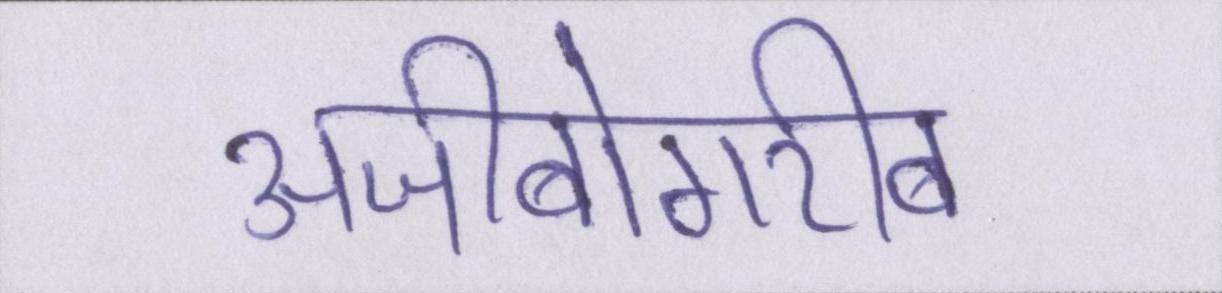 अजीबोगरीब